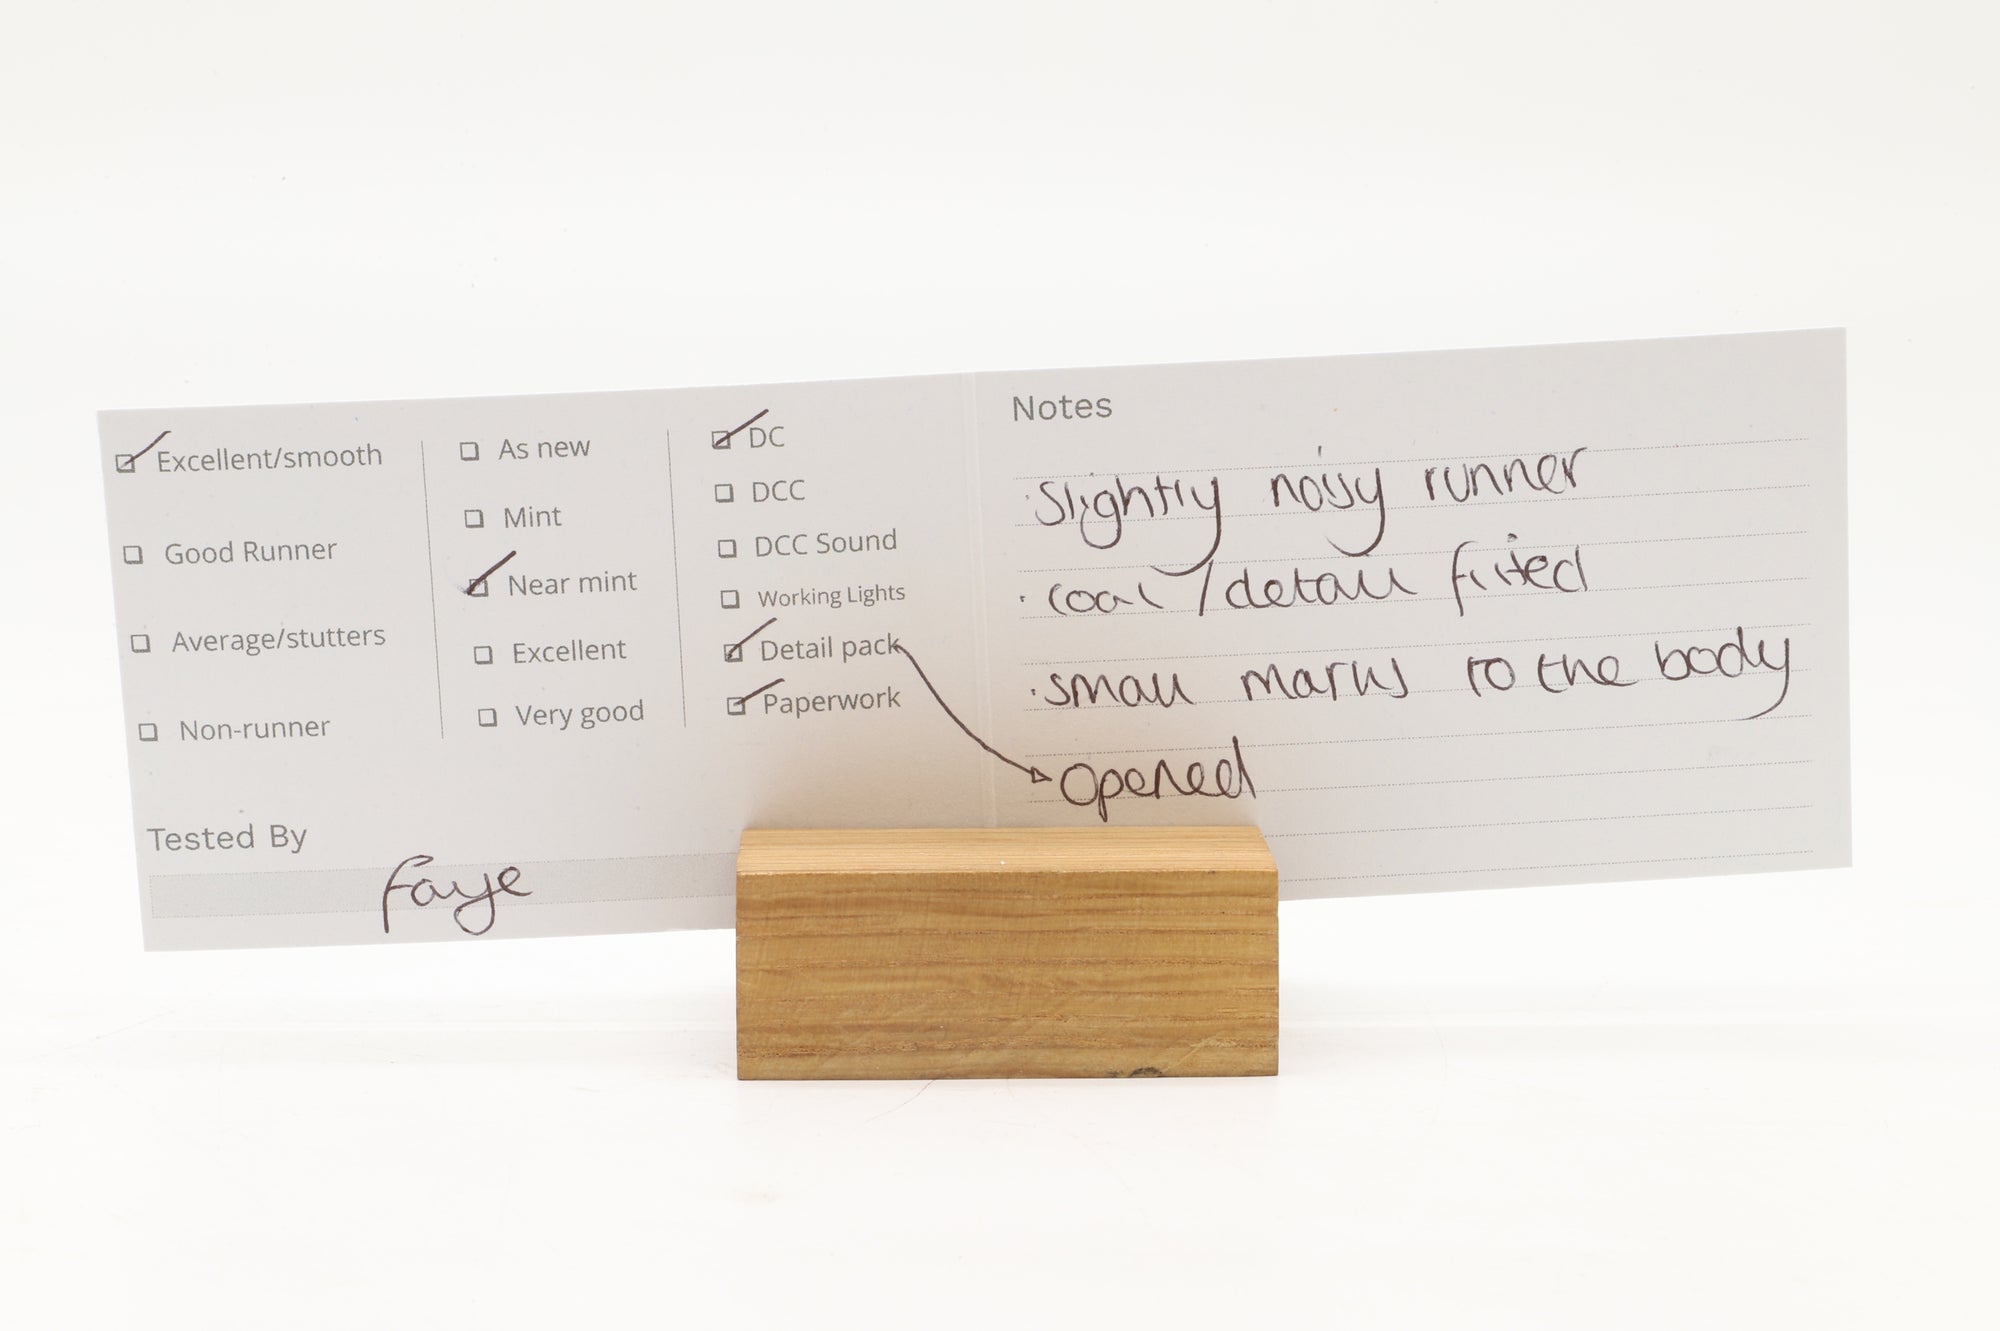 Excellent/smooth
Good Runner
Average/stutters
Non-runner
As new
Mint
Near mint
Excellent
Very good
DC
DCC
DCC Sound
Working Lights
Detail pack
Paperwork
Tested By
Faye
Notes
· Slightly noisy runner
· coal/detail fitted
· small marks to the body
Opened